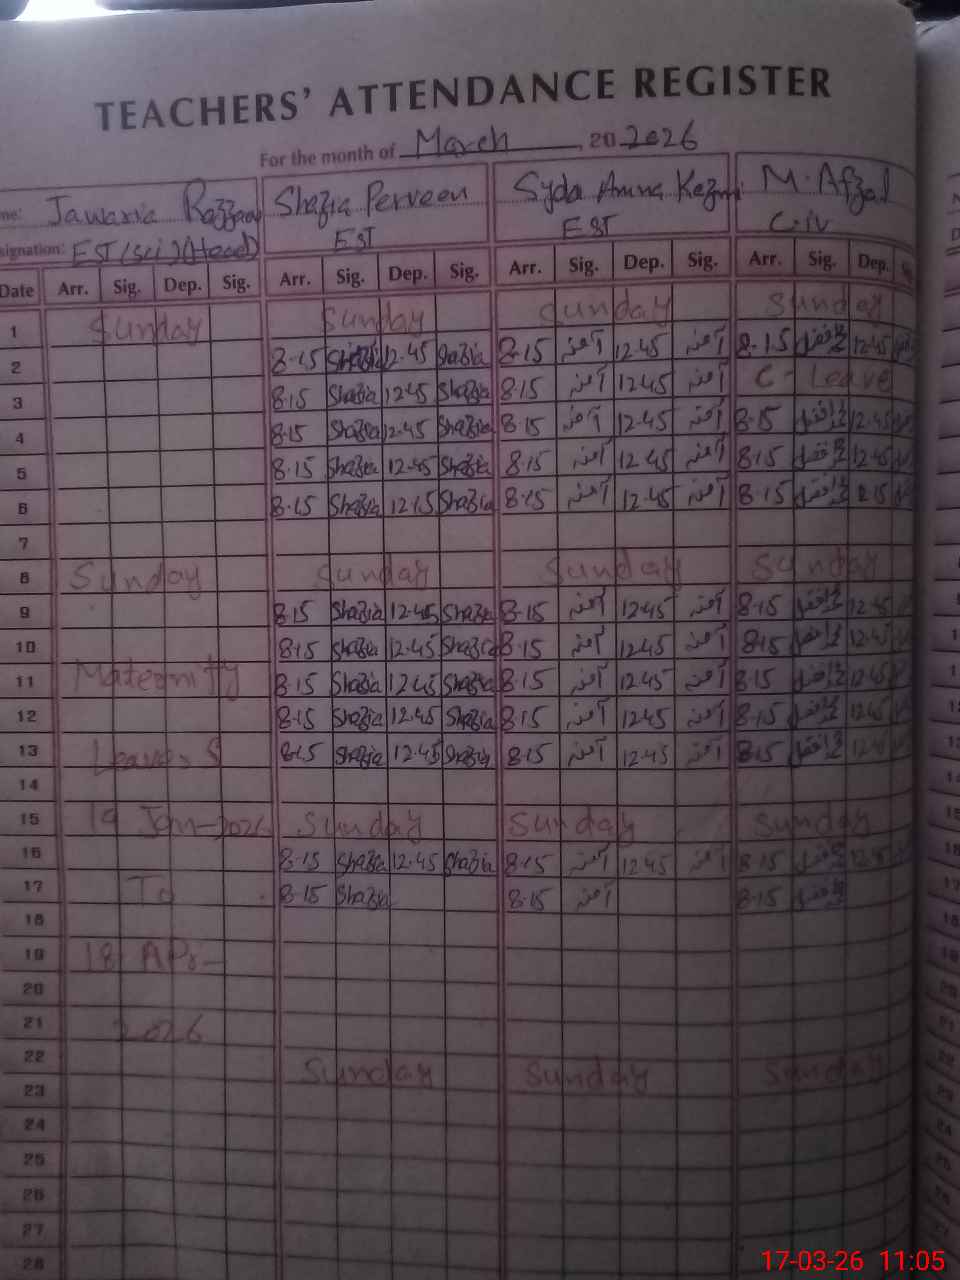 TEACHERS' ATTENDANCE REGISTER
For the month of March, 20 2026
me: Jawaria Razzaq Shazia Perveen Syda Amna Kazmi M. Afzal
signation: EST (sci) (Head) EST EST C-iv
Date Arr. Sig. Dep. Sig. Arr. Sig. Dep. Sig. Arr. Sig. Dep. Sig. Arr. Sig. Dep. Sig.
1 Sunday Sunday Sunday Sunday
2 8-15 Shazia 12-45 Shazia 8-15 آمنہ 12-45 آمنہ 8-15 12-45
3 8-15 Shazia 12-45 Shazia 8-15 آمنہ 12-45 آمنہ C- Leave
4 8-15 Shazia 12-45 Shazia 8-15 آمنہ 12-45 آمنہ 8-15 12-45
5 8-15 Shazia 12-45 Shazia 8-15 آمنہ 12-45 آمنہ 8-15 12-45
6 8-15 Shazia 12-15 Shazia 8-15 آمنہ 12-45 آمنہ 8-15 12-15
7
8 Sunday Sunday Sunday Sunday
9 8-15 Shazia 12-45 Shazia 8-15 آمنہ 12-45 آمنہ 8-15 12-45
10 8-15 Shazia 12-45 Shazia 8-15 آمنہ 12-45 آمنہ 8-15 12-45
11 Maternity 8-15 Shazia 12-45 Shazia 8-15 آمنہ 12-45 آمنہ 8-15 12-45
12 8-15 Shazia 12-45 Shazia 8-15 آمنہ 12-45 آمنہ 8-15 12-45
13 Leaves 8-15 Shazia 12-45 Shazia 8-15 آمنہ 12-45 آمنہ 8-15 12-45
14
15 19 Jan-2026 Sunday Sunday Sunday
16 8-15 Shazia 12-45 Shazia 8-15 آمنہ 12-45 آمنہ 8-15 12-45
17 To 8-15 Shazia 8-15 آمنہ 8-15
18
19 18 Apr-
20
21 2026
22 Sunday Sunday Sunday
23
24
25
26
27
28
17-03-26 11:05